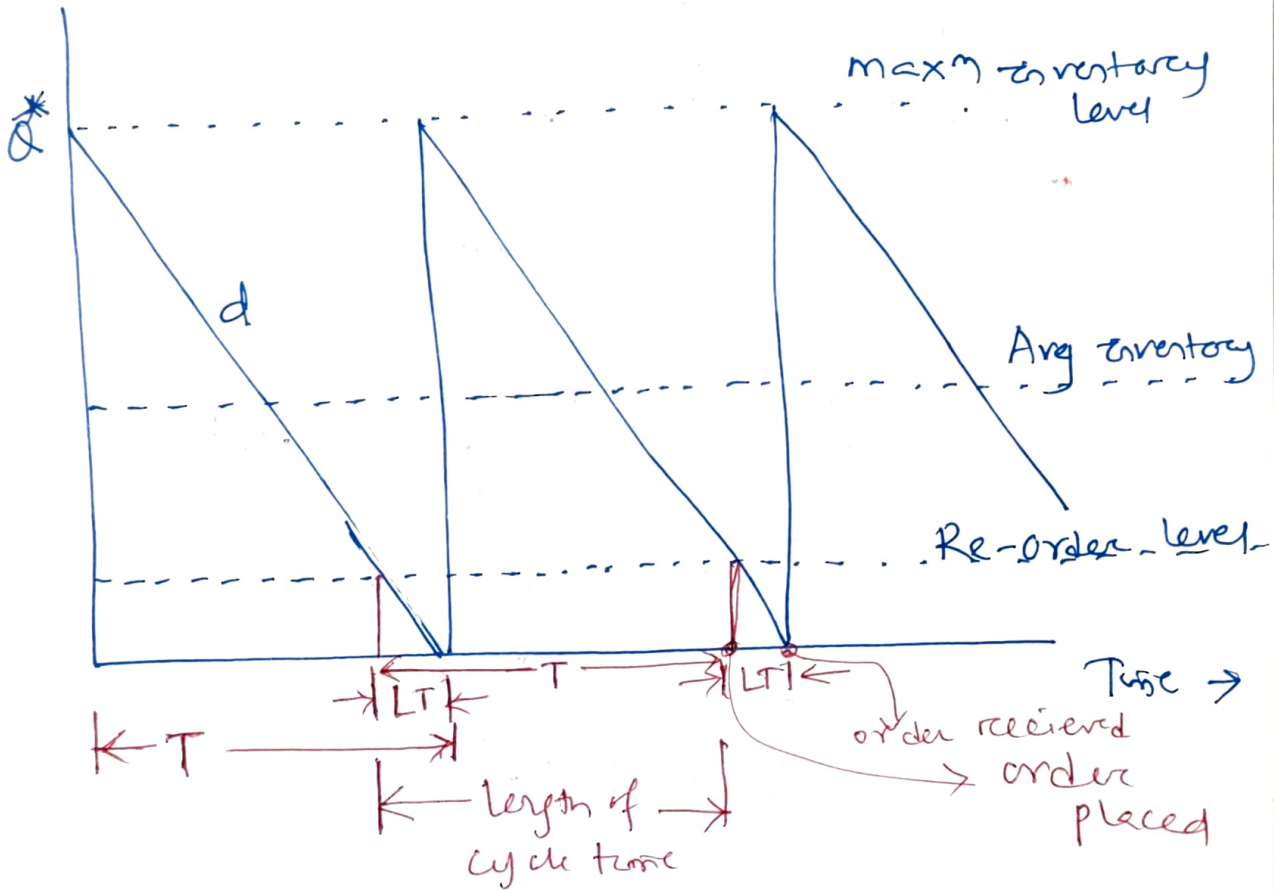 maxm inventory
level
Q*
d
Avg inventory
Re-order level
T
LT
LT
Time →
T
order recieved
order
placed
length of
cycle time